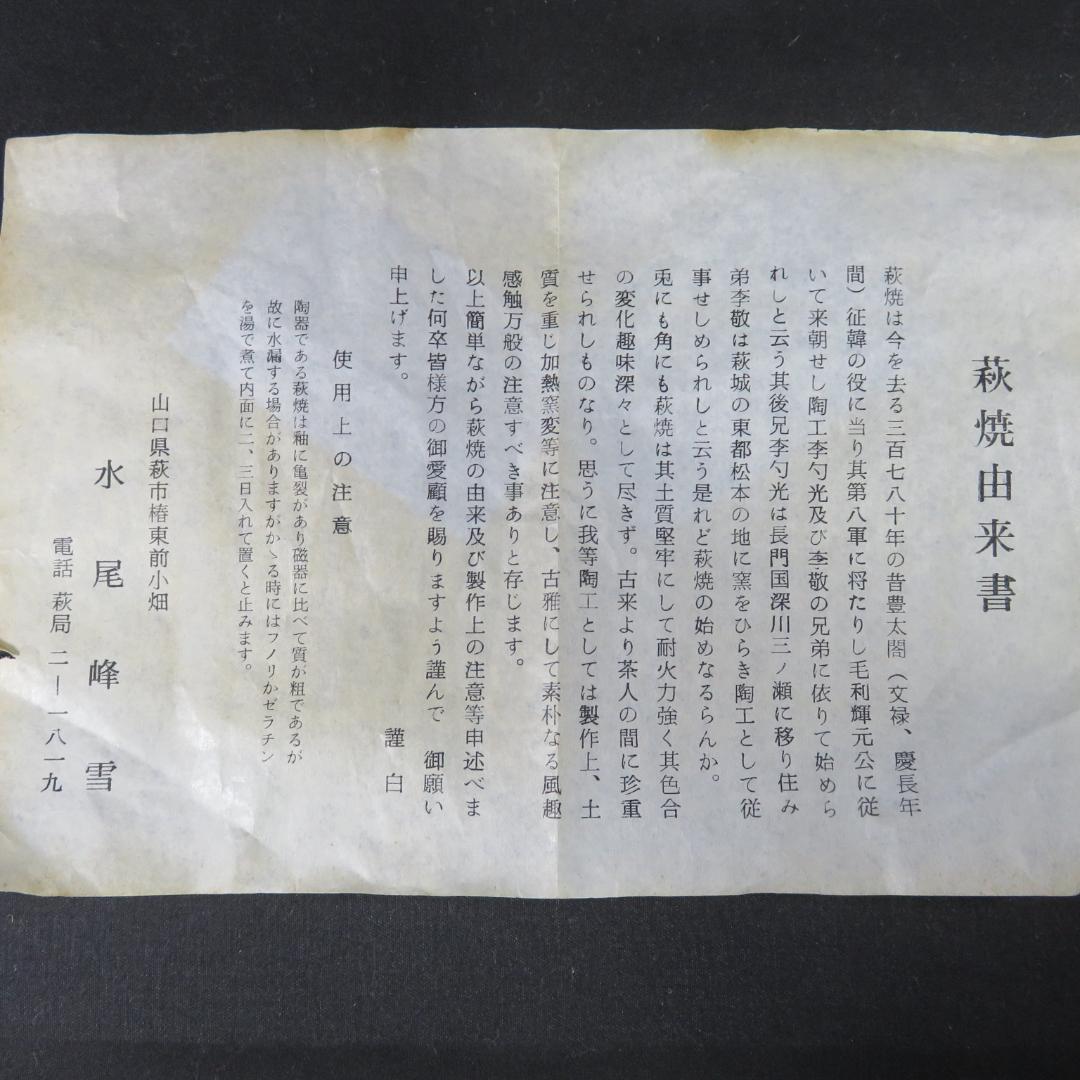 萩焼由来書
萩焼は今を去る三百七八十年の昔豊太閤（文禄、慶長年
間）征韓の役に当り其第八軍に将たりし毛利輝元公に従
いて来朝せし陶工李勺光及び李敬の兄弟に依りて始めら
れしと云う其後兄李勺光は長門国深川三ノ瀬に移り住み
弟李敬は萩城の東都松本の地に窯をひらき陶工として従
事せしめられしと云う是れど萩焼の始めなるらんか。
兎にも角にも萩焼は其土質堅牢にして耐火力強く其色合
の変化趣味深々として尽きず。古来より茶人の間に珍重
せられしものなり。思うに我等陶工としては製作上、土
質を重じ加熱窯変等に注意し、古雅にして素朴なる風趣
感触万般の注意すべき事ありと存じます。
以上簡単ながら萩焼の由来及び製作上の注意等申述べま
した何卒皆様方の御愛顧を賜りますよう謹んで　御願い
申上げます。
謹白
使用上の注意
陶器である萩焼は釉に亀裂があり磁器に比べて質が粗であるが
故に水漏する場合がありますがかゝる時にはフノリかゼラチン
を湯で煮て内面に二、三日入れて置くと止みます。
山口県萩市椿東前小畑
水尾峰雪
電話　萩局　二―一八一九